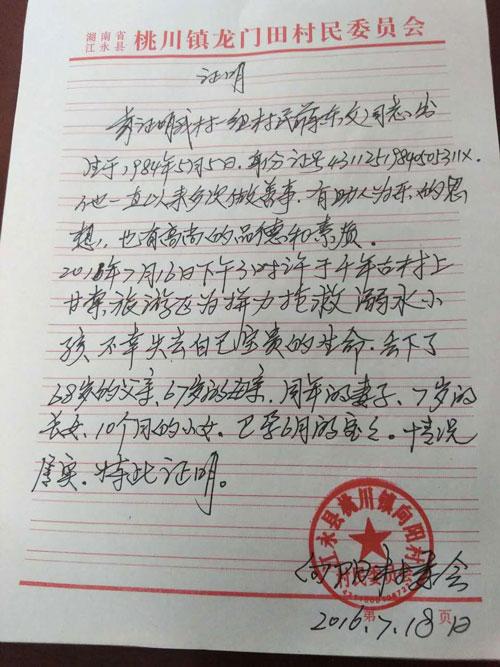 湖南省
江永县 桃川镇龙门田村民委员会
证明
兹证明我村一组村民蒋东文同志,出
生于1984年5月5日,身份证号43112519840505311X.
他一直以来多次做善事,有助人为乐的思
想,也有高尚的品德和素质。
2016年7月16日下午3时许于千年古村上
甘棠旅游区为拼力抢救溺水小
孩不幸失去自己宝贵的生命.丢下了
68岁的父亲、67岁的母亲、同年的妻子、7岁的
长女、10个月的小女、已孕6月的宝宝。情况
属实.特此证明。
江永县桃川镇向阳村
村民委员会
向阳村委会
第 页
2016.7.18日